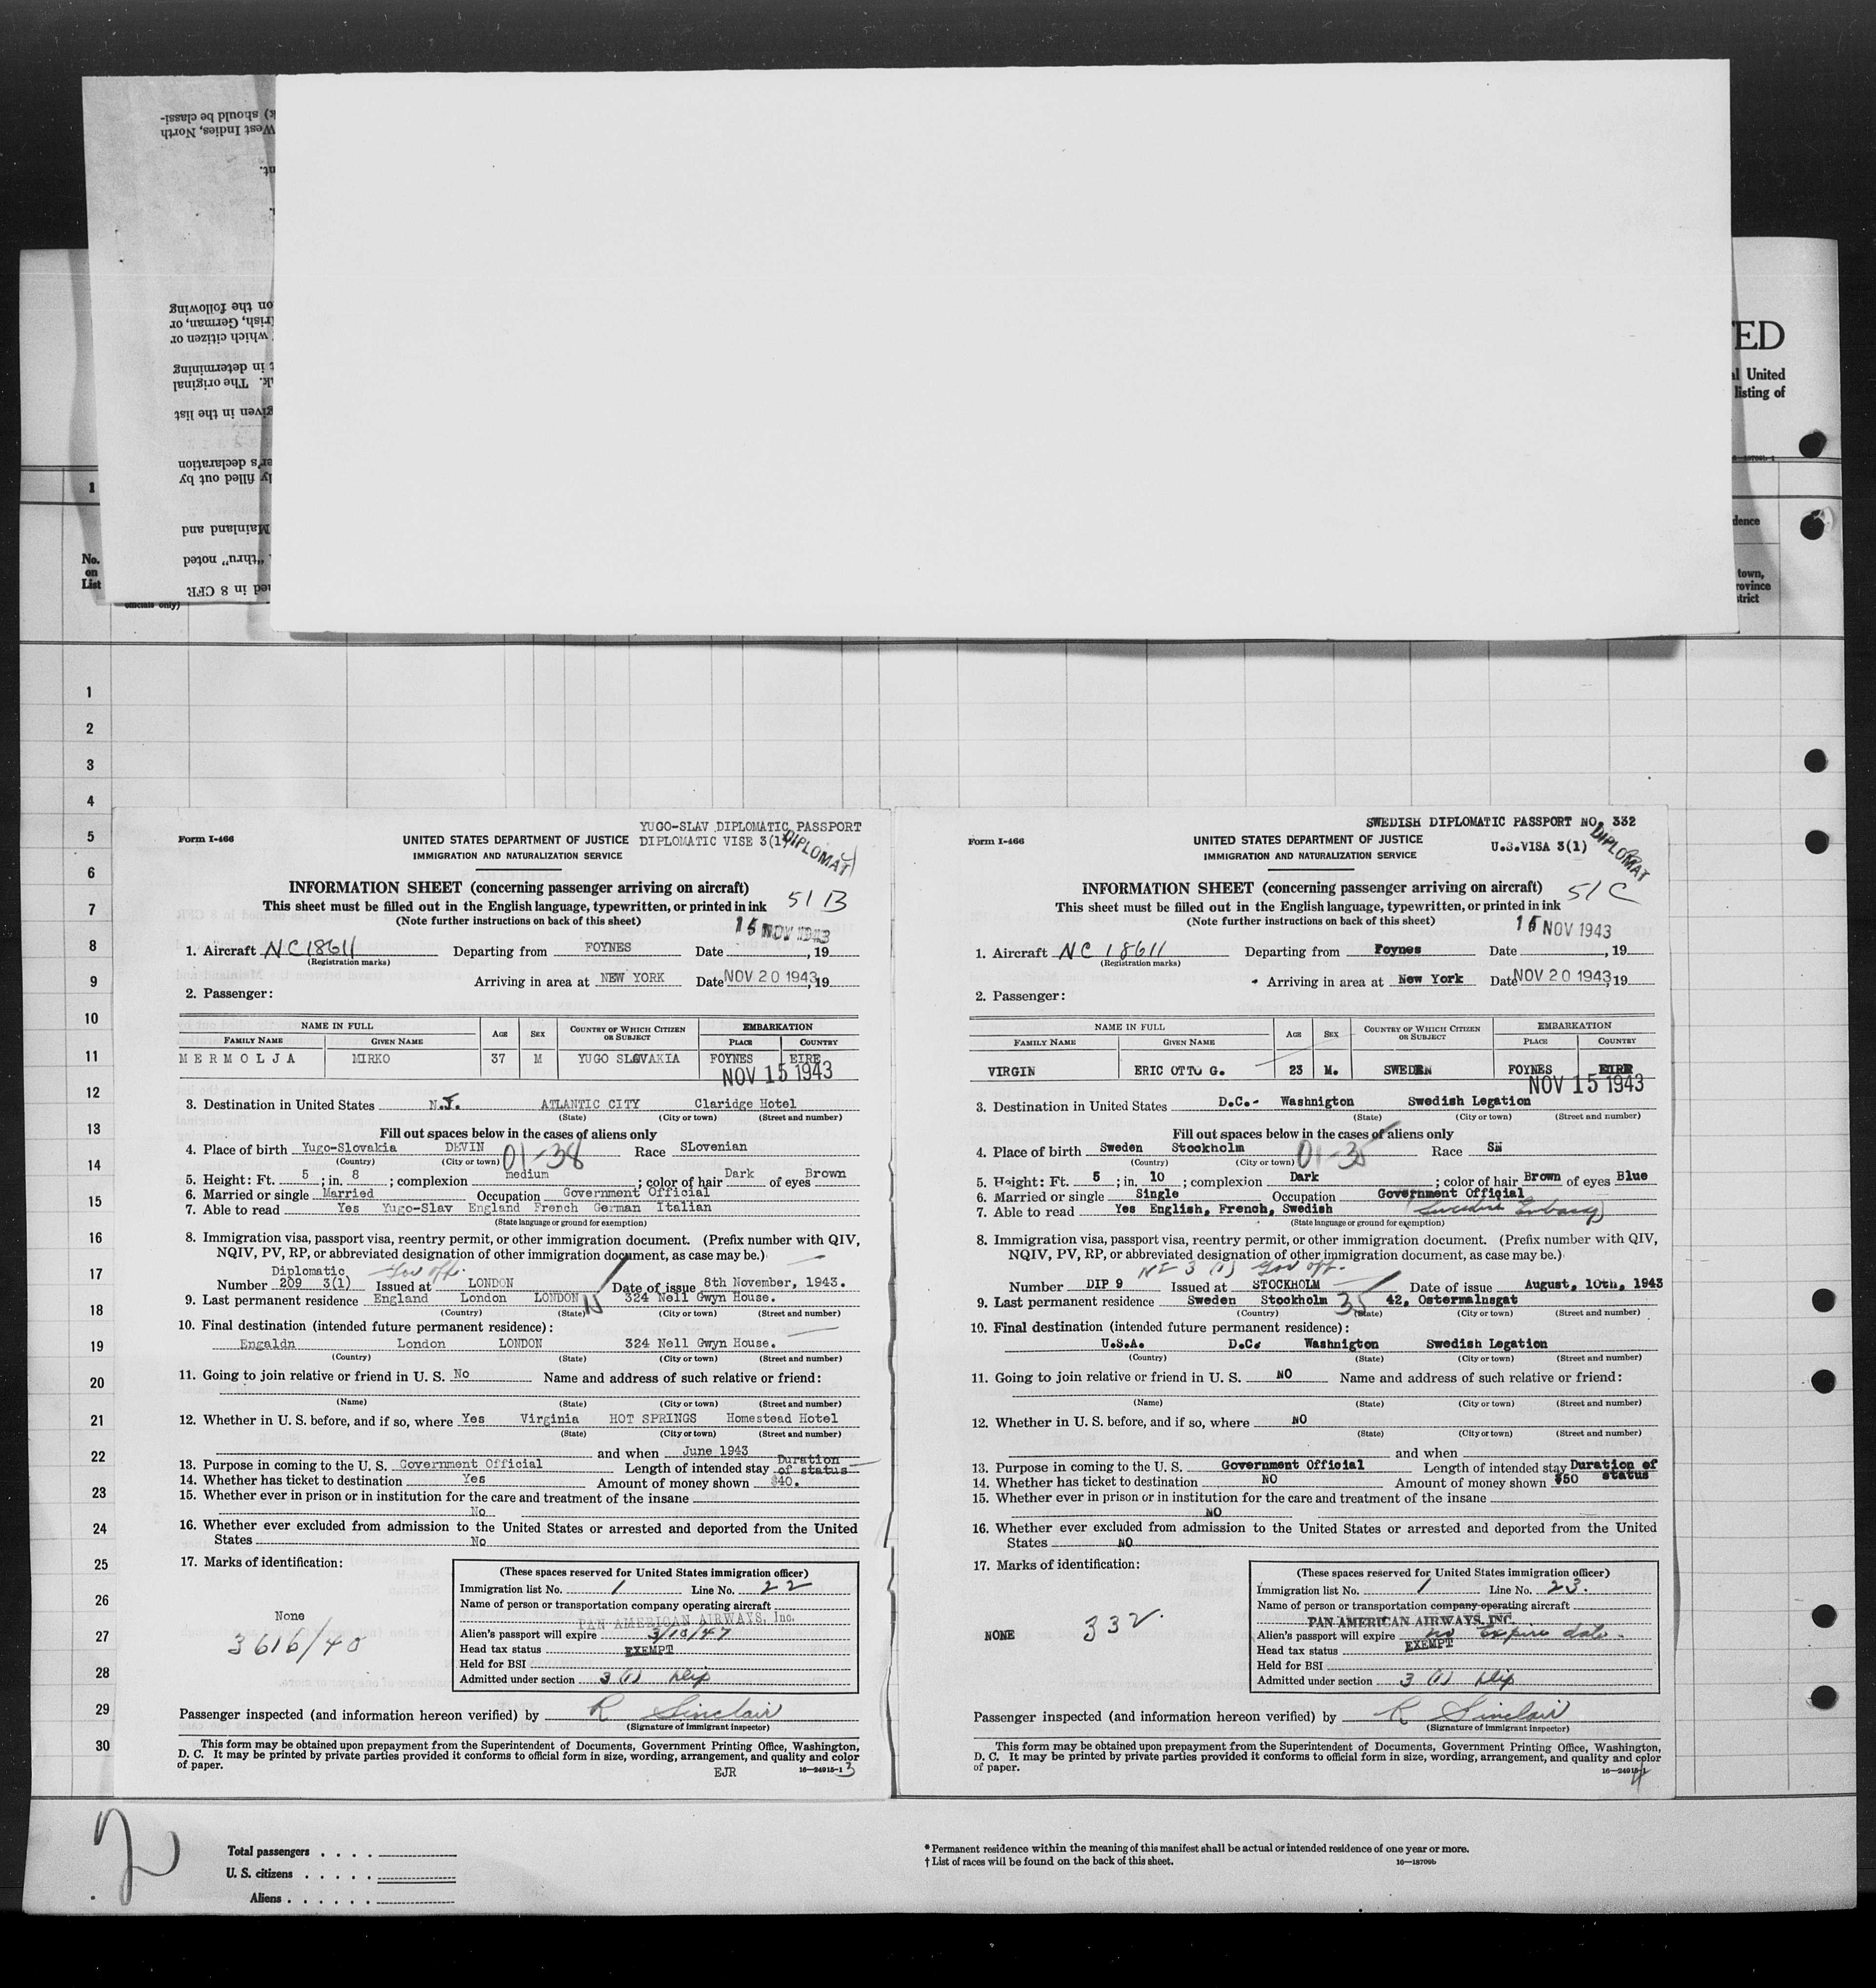 k) should be classi-
West Indies, North
nt.
on the following
Irish, German, or
which citizen or
t in determining
The original
given in the list
er's declaration
ly filled out by
Mainland and
"thru" noted
ned in 8 CFR
officials only)
TED
al United
listing of
dence
town,
rovince
strict
1
No.
on
List
1
2
3
4
5
6
7
8
9
10
11
12
13
14
15
16
17
18
19
20
21
22
23
24
25
26
27
28
29
30
YUGO-SLAV DIPLOMATIC PASSPORT
Form I-466 UNITED STATES DEPARTMENT OF JUSTICE DIPLOMATIC VISE 3(1)
DIPLOMAT
IMMIGRATION AND NATURALIZATION SERVICE
INFORMATION SHEET (concerning passenger arriving on aircraft)
51 B
This sheet must be filled out in the English language, typewritten, or printed in ink
(Note further instructions on back of this sheet)
15 NOV 1943
1. Aircraft NC18611 Departing from FOYNES Date , 19
(Registration marks)
Arriving in area at NEW YORK Date NOV 20 1943, 19
2. Passenger:
NAME IN FULL AGE SEX COUNTRY OF WHICH CITIZEN OR SUBJECT EMBARKATION
FAMILY NAME GIVEN NAME PLACE COUNTRY
MERMOLJA MIRKO 37 M YUGO SLOVAKIA FOYNES EIRE
NOV 15 1943
3. Destination in United States N.J. ATLANTIC CITY Claridge Hotel
(State) (City or town) (Street and number)
Fill out spaces below in the cases of aliens only
4. Place of birth Yugo-Slovakia DEVIN 01-38 Race SLovenian
(Country) (City or town)
5. Height: Ft. 5 ; in. 8 ; complexion medium ; color of hair Dark of eyes Brown
6. Married or single Married Occupation Government Official
7. Able to read Yes Yugo-Slav England French German Italian
(State language or ground for exemption)
8. Immigration visa, passport visa, reentry permit, or other immigration document. (Prefix number with QIV,
NQIV, PV, RP, or abbreviated designation of other immigration document, as case may be.)
Diplomatic Gov off.
Number 209 3(1) Issued at LONDON Date of issue 8th November, 1943.
9. Last permanent residence England London LONDON 324 Nell Gwyn House.
(Country) (State) (City or town) (Street and number)
10. Final destination (intended future permanent residence):
Engaldn London LONDON 324 Nell Gwyn House.
(Country) (State) (City or town) (Street and number)
11. Going to join relative or friend in U. S. No Name and address of such relative or friend:
(Name) (State) (City or town) (Street and number)
12. Whether in U. S. before, and if so, where Yes Virginia HOT SPRINGS Homestead Hotel
(State) (City or town) (Street and number)
and when June 1943
13. Purpose in coming to the U. S. Government Official Length of intended stay Duration of status
14. Whether has ticket to destination Yes Amount of money shown $40.
15. Whether ever in prison or in institution for the care and treatment of the insane
No
16. Whether ever excluded from admission to the United States or arrested and deported from the United
States No
17. Marks of identification:
None
3616/40
(These spaces reserved for United States immigration officer)
Immigration list No. 1 Line No. 22
Name of person or transportation company operating aircraft
PAN AMERICAN AIRWAYS, Inc.
Alien's passport will expire 3/10/47
Head tax status EXEMPT
Held for BSI
Admitted under section 3 (1) Dip
Passenger inspected (and information hereon verified) by R Sinclair
(Signature of immigrant inspector)
This form may be obtained upon prepayment from the Superintendent of Documents, Government Printing Office, Washington,
D. C. It may be printed by private parties provided it conforms to official form in size, wording, arrangement, and quality and color
of paper.
EJR 16—24915-1 3
SWEDISH DIPLOMATIC PASSPORT NO. 332
Form I-466 UNITED STATES DEPARTMENT OF JUSTICE U.S.VISA 3(1)
DIPLOMAT
IMMIGRATION AND NATURALIZATION SERVICE
INFORMATION SHEET (concerning passenger arriving on aircraft)
51 C
This sheet must be filled out in the English language, typewritten, or printed in ink
(Note further instructions on back of this sheet)
15 NOV 1943
1. Aircraft NC 18611 Departing from Foynes Date , 19
(Registration marks)
Arriving in area at New York Date NOV 20 1943, 19
2. Passenger:
NAME IN FULL AGE SEX COUNTRY OF WHICH CITIZEN OR SUBJECT EMBARKATION
FAMILY NAME GIVEN NAME PLACE COUNTRY
VIRGIN ERIC OTTO G. 23 M. SWEDEN FOYNES EIRE
NOV 15 1943
3. Destination in United States D.C.- Washnigton Swedish Legation
(State) (City or town) (Street and number)
Fill out spaces below in the cases of aliens only
4. Place of birth Sweden Stockholm 01-35 Race
(Country) (City or town)
5. Height: Ft. 5 ; in. 10 ; complexion Dark ; color of hair Brown of eyes Blue
6. Married or single Single Occupation Government Official
7. Able to read Yes English, French, Swedish Swedish Embassy
(State language or ground for exemption)
8. Immigration visa, passport visa, reentry permit, or other immigration document. (Prefix number with QIV,
NQIV, PV, RP, or abbreviated designation of other immigration document, as case may be.)
3 (1) Gov off.
Number DIP 9 Issued at STOCKHOLM Date of issue August, 10th, 1943
9. Last permanent residence Sweden Stockholm 35 42, Ostermalnsgat
(Country) (State) (City or town) (Street and number)
10. Final destination (intended future permanent residence):
U.S.A. D.C. Washnigton Swedish Legation
(Country) (State) (City or town) (Street and number)
11. Going to join relative or friend in U. S. NO Name and address of such relative or friend:
(Name) (State) (City or town) (Street and number)
12. Whether in U. S. before, and if so, where NO
(State) (City or town) (Street and number)
and when
13. Purpose in coming to the U. S. Government Official Length of intended stay Duration of status
14. Whether has ticket to destination NO Amount of money shown $50
15. Whether ever in prison or in institution for the care and treatment of the insane
NO
16. Whether ever excluded from admission to the United States or arrested and deported from the United
States NO
17. Marks of identification:
NONE
332.
(These spaces reserved for United States immigration officer)
Immigration list No. 1 Line No. 23.
Name of person or transportation company operating aircraft
PAN AMERICAN AIRWAYS, INC.
Alien's passport will expire no Expire date.
Head tax status EXEMPT
Held for BSI
Admitted under section 3 (1) Dip
Passenger inspected (and information hereon verified) by R Sinclair
(Signature of immigrant inspector)
This form may be obtained upon prepayment from the Superintendent of Documents, Government Printing Office, Washington,
D. C. It may be printed by private parties provided it conforms to official form in size, wording, arrangement, and quality and color
of paper.
16—24915-1 4
2
Total passengers
U. S. citizens
Aliens
* Permanent residence within the meaning of this manifest shall be actual or intended residence of one year or more.
† List of races will be found on the back of this sheet.
16—18709b